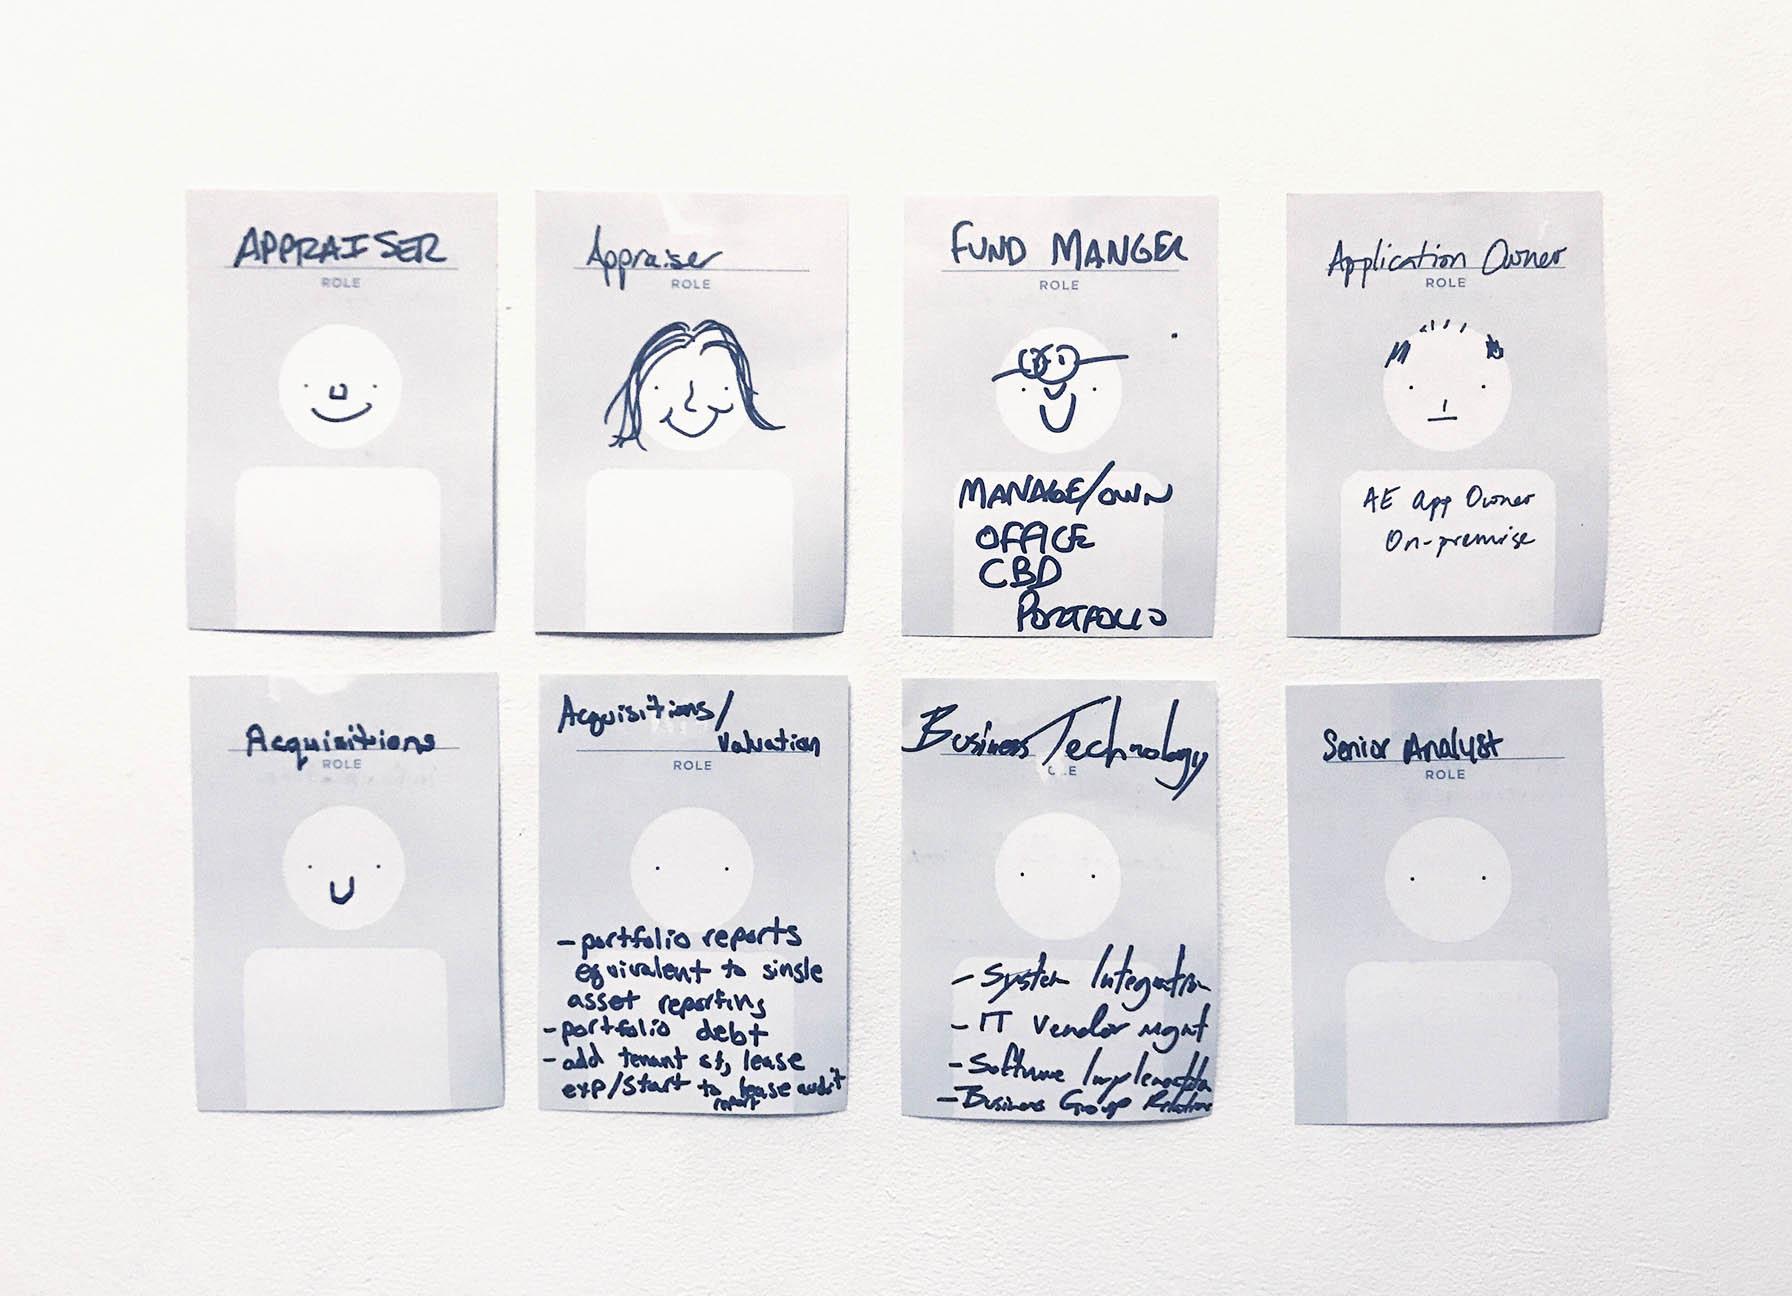 APPRAISER
ROLE
Appraiser
ROLE
FUND MANGER
ROLE
MANAGE/OWN
OFFICE
CBD
PORTFOLIO
Application Owner
ROLE
AE App Owner
On-premise
Acquisitions
ROLE
Acquisitions/
Valuation
ROLE
- portfolio reports
equivalent to single
asset reporting
- portfolio debt
- add tenant sf, lease
exp/start to lease audit
report
Business Technology
- System Integration
- IT Vendor Mgmt
- Software
- Business Group Relations
Senior Analyst
ROLE